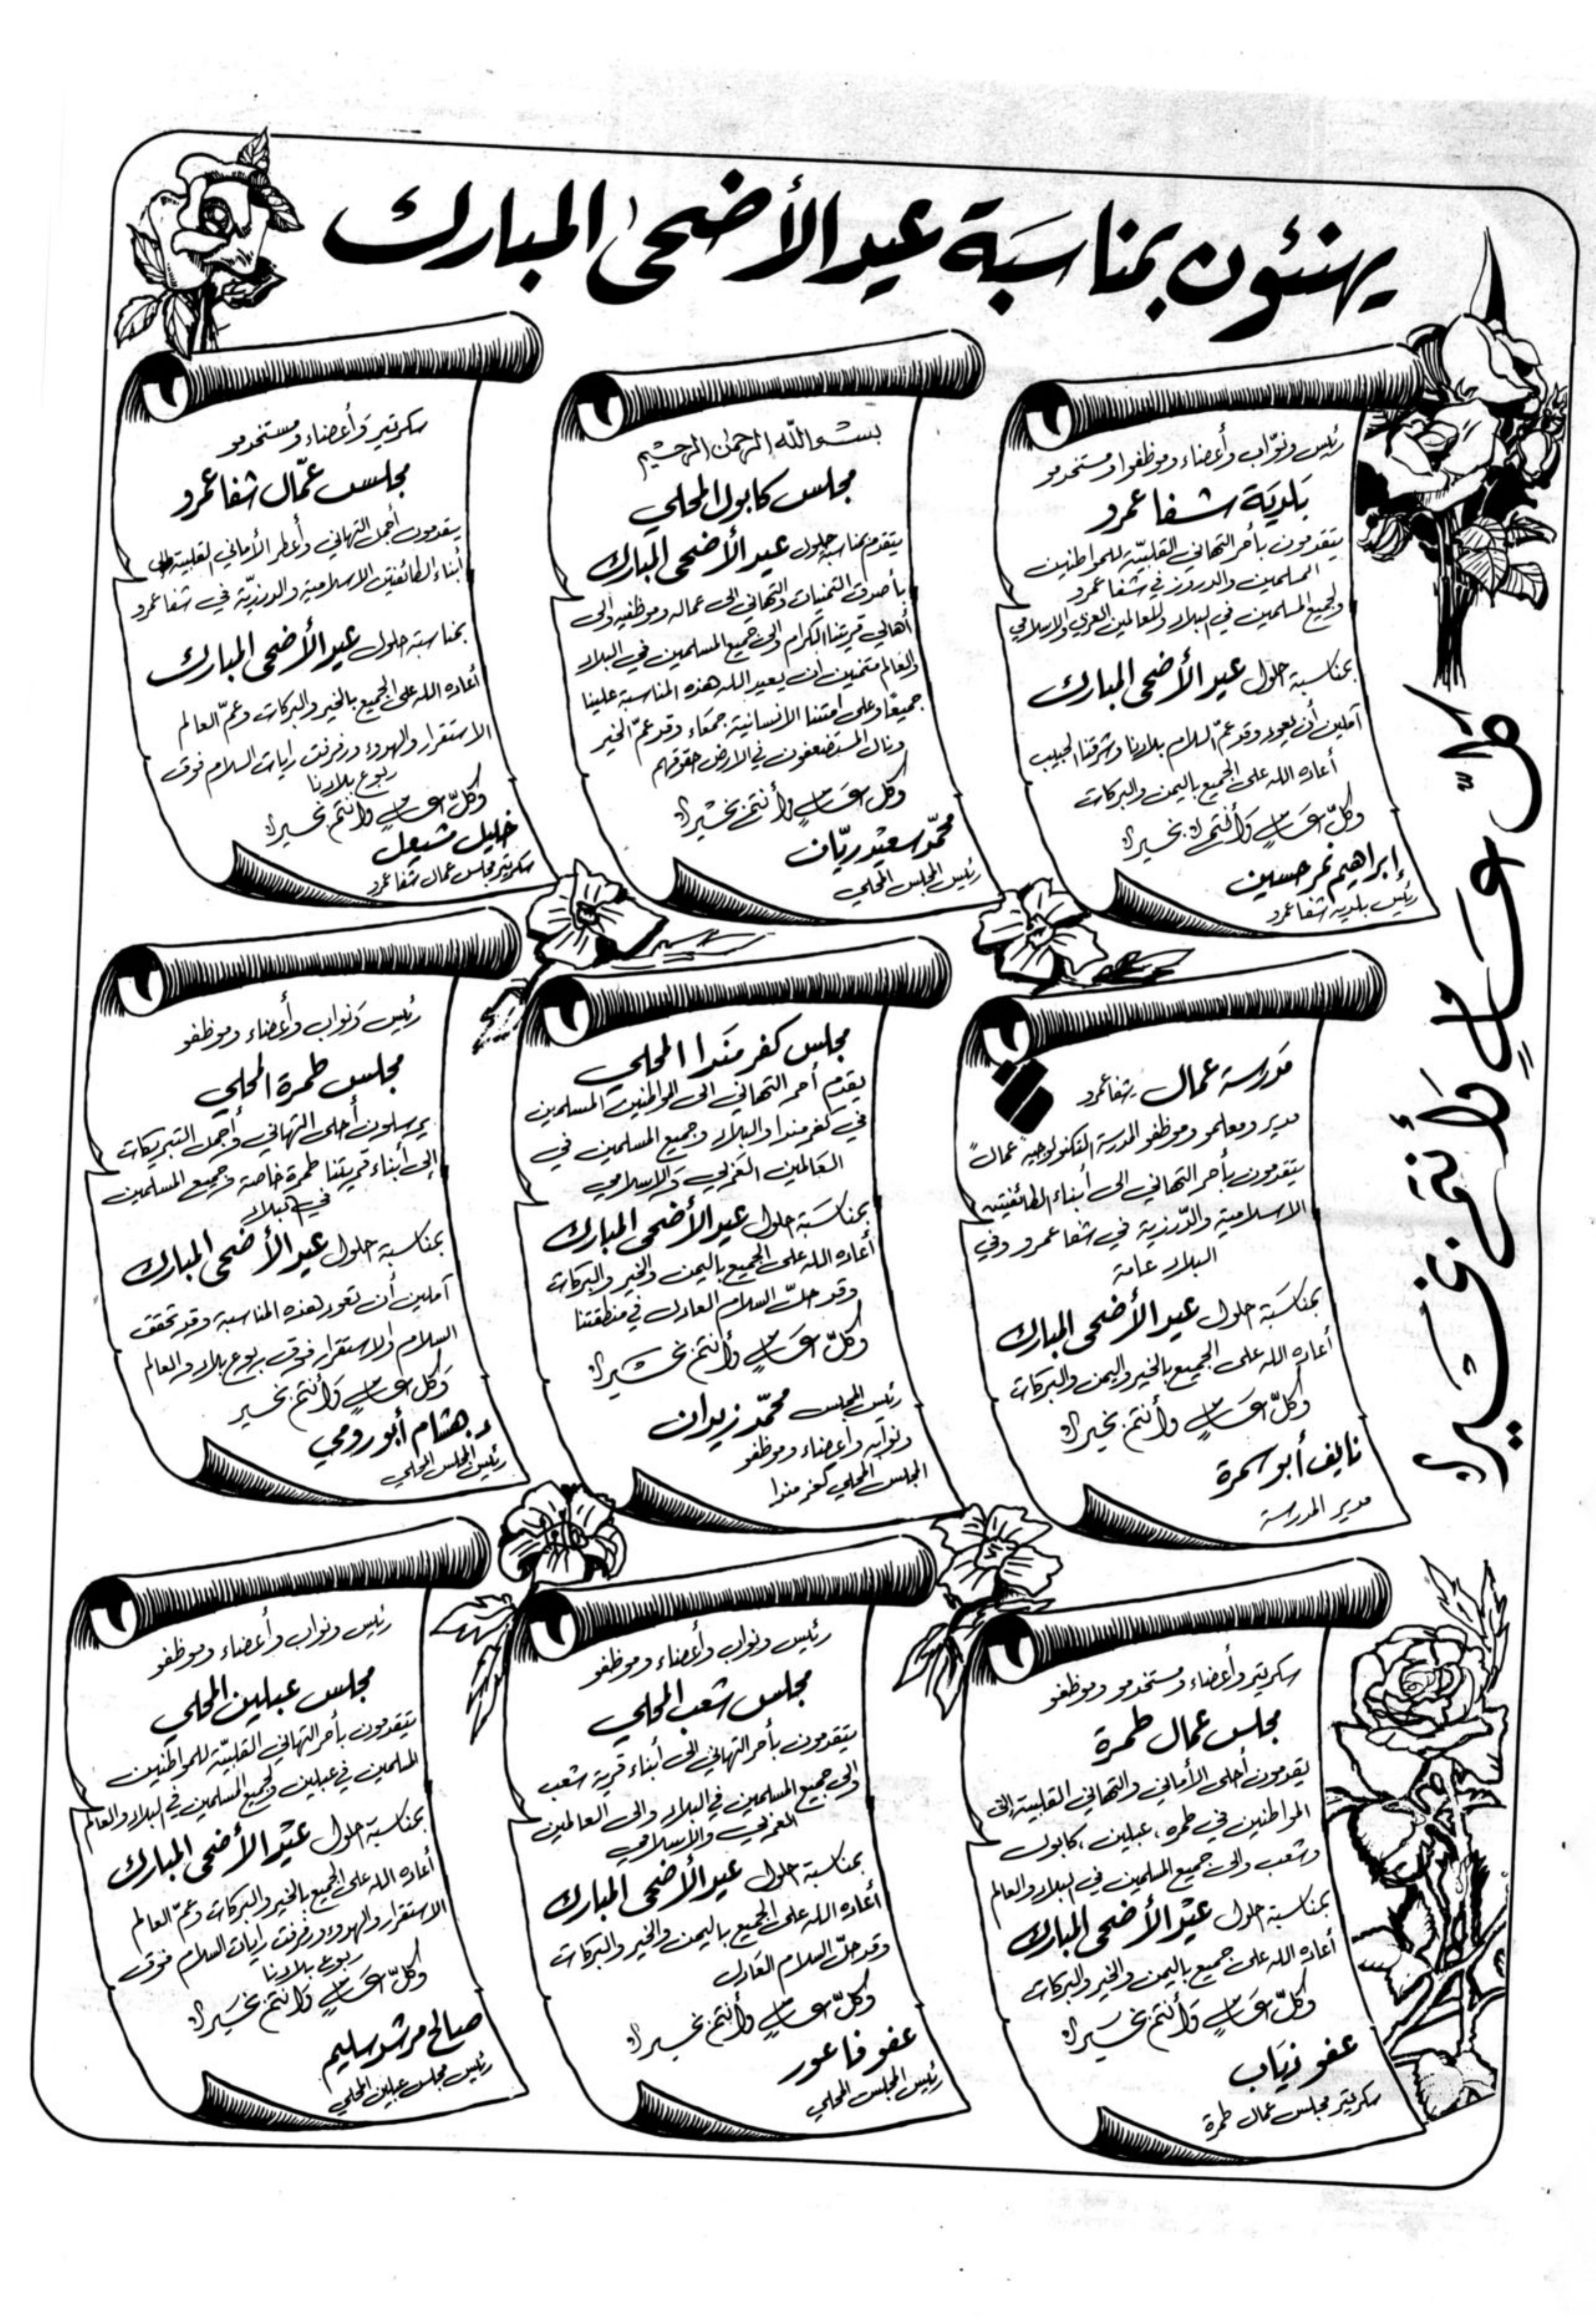 يهنئون بمناسبة عيد الأضحى المبارك
رئيس ونوّاب وأعضاء وموظفوا ومستخدمو
بلدية شفاعمرو
يتقدمون بأحر التهاني القلبيّة للمواطنين
المسلمين والدروز في شفاعمرو
ولجميع المسلمين في البلاد وللعالمين العربي والاسلامي
بمناسبة حلول عيد الأضحى المبارك
آملين أن يعود وقد عمّ السلام بلادنا وشرقنا الحبيب
أعاده الله على الجميع باليمن والبركات
وكلّ عام وأنتم بخير
إبراهيم نمر حسين
رئيس بلدية شفاعمرو
بسم الله الرحمن الرحيم
مجلس كابول المحلي
يتقدم بمناسبة حلول عيد الأضحى المبارك
بأصدق التمنيات والتهاني الى عماله وموظفيه والى
أهالي قريتنا الكرام والى جميع المسلمين في البلاد
والعالم متمنين ان يعيد الله هذه المناسبة علينا
جميعًا وعلى امتنا الانسانية جمعاء وقد عمّ الخير
ونال المستضعفون في الارض حقوقهم
وكل عام وأنتم بخير
محمّد سعيد ريّان
رئيس المجلس المحلي
سكرتير وأعضاء ومستخدمو
مجلس عمّال شفاعمرو
يتقدمون أجمل التهاني وأعطر الأماني القلبية الى
أبناء الطائفتين الاسلامية والدرزيّة في شفاعمرو
بمناسبة حلول عيد الأضحى المبارك
أعاده الله على الجميع بالخير والبركات وعمّ العالم
الاستقرار والهدوء ورفرفت رايات السلام فوق
ربوع بلادنا
وكلّ عام وأنتم بخير
خليل مشيعل
سكرتير مجلس عمال شفاعمرو
كلّ عامٍ وأنتم بخير
مدرسة عمال شفاعمرو
مدير ومعلمو وموظفو المدرسة التكنولوجية "عمال"
يتقدمون بأحر التهاني الى أبناء الطائفتين
الاسلامية والدّرزية في شفاعمرو وفي
البلاد عامة
بمناسبة حلول عيد الأضحى المبارك
أعاده الله على الجميع بالخير واليمن والبركات
وكلّ عام وأنتم بخير
نايف أبو سمرة
مدير المدرسة
مجلس كفرمندا المحلي
يقدم أحر التهاني الى المواطنين المسلمين
في كفرمندا والبلاد وجميع المسلمين في
العالمين العربي والاسلامي
بمناسبة حلول عيد الأضحى المبارك
أعاده الله على الجميع باليمن والخير والبركات
وقد حلّ السلام العادل في منطقتنا
وكلّ عام وأنتم بخير
رئيس المجلس محمّد زيدان
ونوابه وأعضاء وموظفو
المجلس المحلي كفرمندا
رئيس ونواب وأعضاء وموظفو
مجلس طمرة المحلي
يرسلون أحلى التهاني وأجمل التبريكات
إلى أبناء قريتنا طمرة خاصة وجميع المسلمين
في البلاد
بمناسبة حلول عيد الأضحى المبارك
آملين أن تعود هذه المناسبة وقد تحقق
السلام والاستقرار فوق ربوع بلاد والعالم
وكل عام وأنتم بخير
د. هشام أبو رومي
رئيس المجلس المحلي
سكرتير وأعضاء ومستخدمو وموظفو
مجلس عمال طمرة
يقدمون أحلى الأماني والتهاني القلبية الى
المواطنين في طمره، عبلين، كابول
وشعب والى جميع المسلمين في البلاد والعالم
بمناسبة حلول عيد الأضحى المبارك
أعاده الله على جميع باليمن والخير والبركات
وكلّ عام وأنتم بخير
عفو ذياب
سكرتير مجلس عمال طمرة
رئيس ونواب وأعضاء وموظفو
مجلس شعب المحلي
يتقدمون بأحر التهاني الى أبناء قرية شعب
والى جميع المسلمين في البلاد والى العالمين
العربي والاسلامي
بمناسبة حلول عيد الأضحى المبارك
أعاده الله على الجميع باليمن والخير والبركات
وقد حلّ السلام العادل
وكلّ عام وأنتم بخير
عفو فاعور
رئيس المجلس المحلي
رئيس ونواب وأعضاء وموظفو
مجلس عبلين المحلي
يتقدمون بأحر التهاني القلبيّة للمواطنين
المسلمين في عبلين ولجميع المسلمين في البلاد والعالم
بمناسبة حلول عيد الأضحى المبارك
أعاده الله على الجميع بالخير والبركات وعمّ العالم
الاستقرار والهدوء ورفرفت رايات السلام فوق
ربوع بلادنا
وكلّ عام وأنتم بخير
صالح مرشد سليم
رئيس مجلس عبلين المحلي